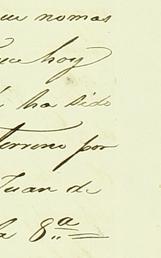 nomas
hoy
ha sido
terreno por
Juan de
la 8ª